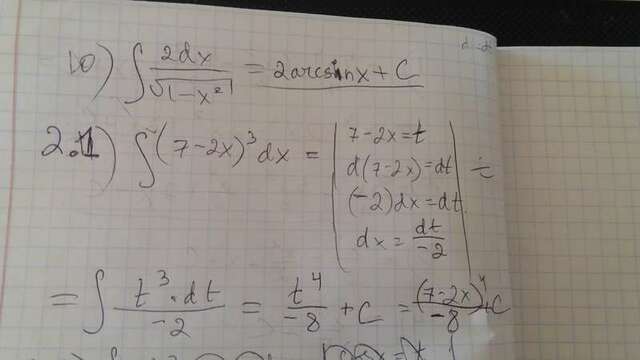 10) ∫ 2dx / √(1-x²) = 2arcsinx + C
2.1) ∫ (7-2x)³ dx = | 7-2x=t
d(7-2x)=dt
(-2)dx=dt
dx = dt/-2 | =
= ∫ t³·dt / -2 = t⁴/-8 + C = (7-2x)⁴/-8 + C